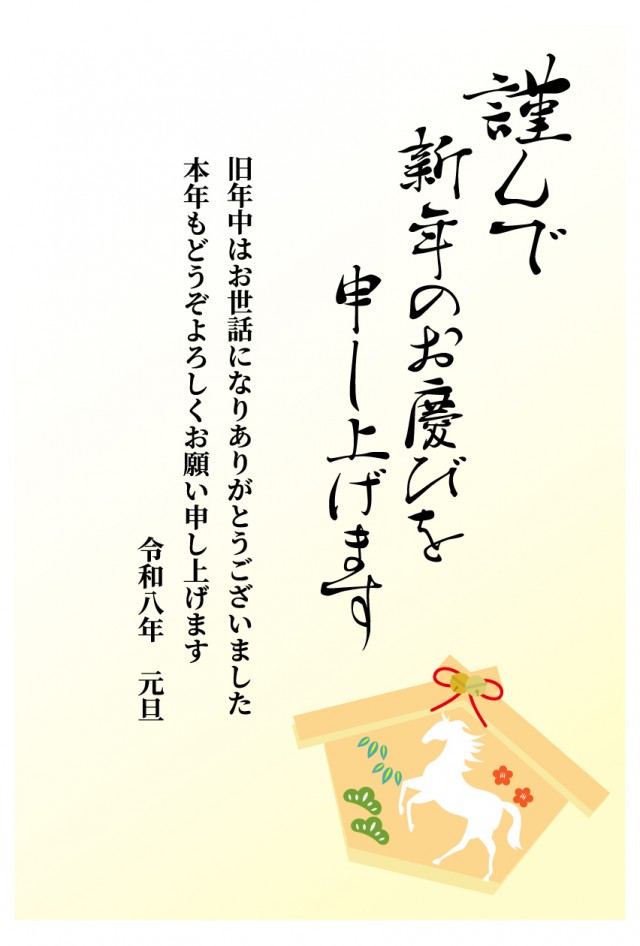 謹んで
新年のお慶びを
申し上げます
旧年中はお世話になりありがとうございました
本年もどうぞよろしくお願い申し上げます
令和八年　元旦